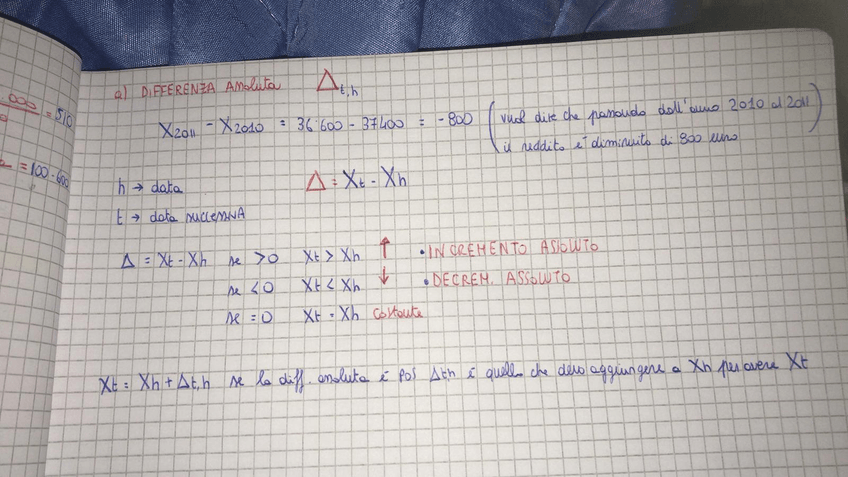 000 = 510
= 100 - 600
a) DIFFERENZA Assoluta Δt,h
X2011 - X2010 = 36.600 - 37400 = -800 (vuol dire che passando dall'anno 2010 al 2011
il reddito è diminuito di 800 euro
h → data Δ = Xt - Xh
t → data successiva
Δ = Xt - Xh se >0 Xt > Xh ↑ • INCREMENTO ASSOLUTO
se <0 Xt < Xh ↓ • DECREM. ASSOLUTO
se =0 Xt = Xh costante
Xt = Xh + Δt,h se la diff. assoluta è pos Δt,h è quello che devo aggiungere a Xh per avere Xt